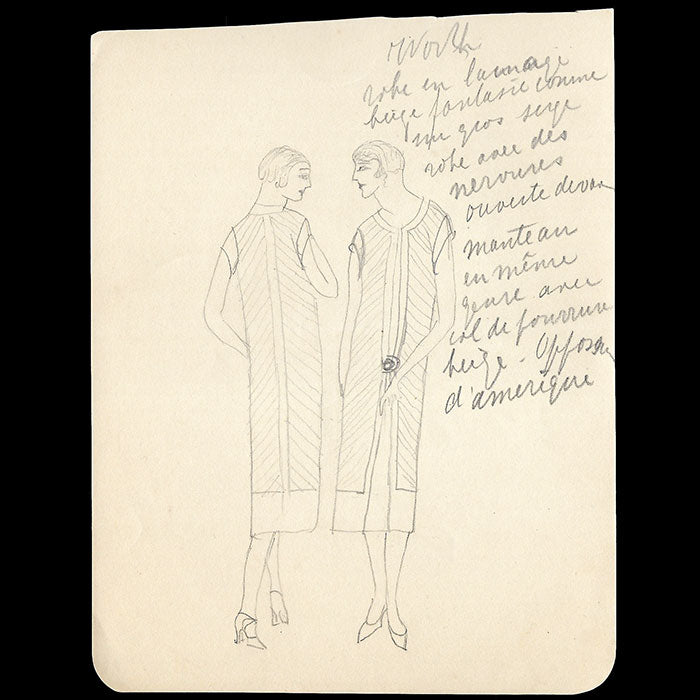 Worth
robe en lainage
beige fantasie comme
un gros serge
robe avec des
nervures
ouverte devan
manteau
en même
genre avec
col de fourrure
beige. Opposum
d'amerique